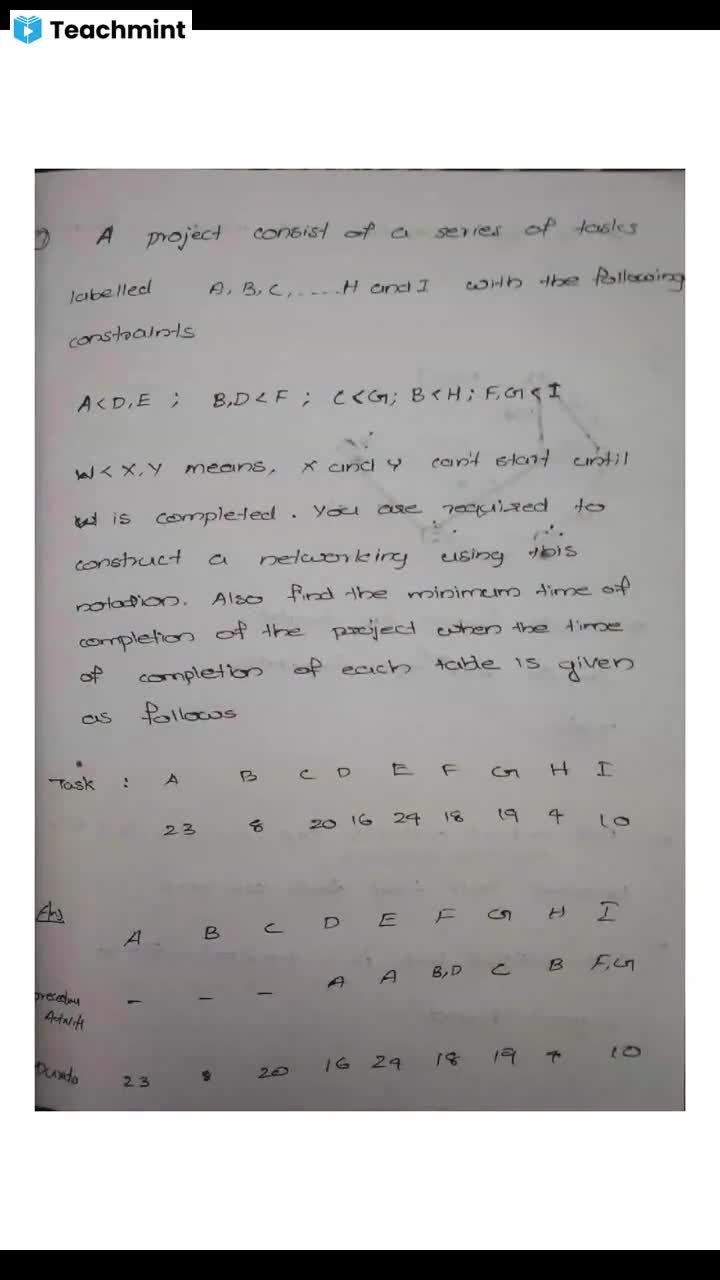 Teachmint
A project consist of a series of tasks
labelled A, B, C, ..... H and I with the following
constraints
A < D, E ; B, D < F ; C < G; B < H ; F, G < I
W < X, Y means, X and Y can't start until
W is completed. You are required to
construct a networking using this
notation. Also find the minimum time of
completion of the project when the time
of completion of each table is given
as follows
Task : A B C D E F G H I
23 8 20 16 24 18 19 4 10
Ans A B C D E F G H I
- - - A A B,D C B F,G
23 8 20 16 24 18 19 4 10